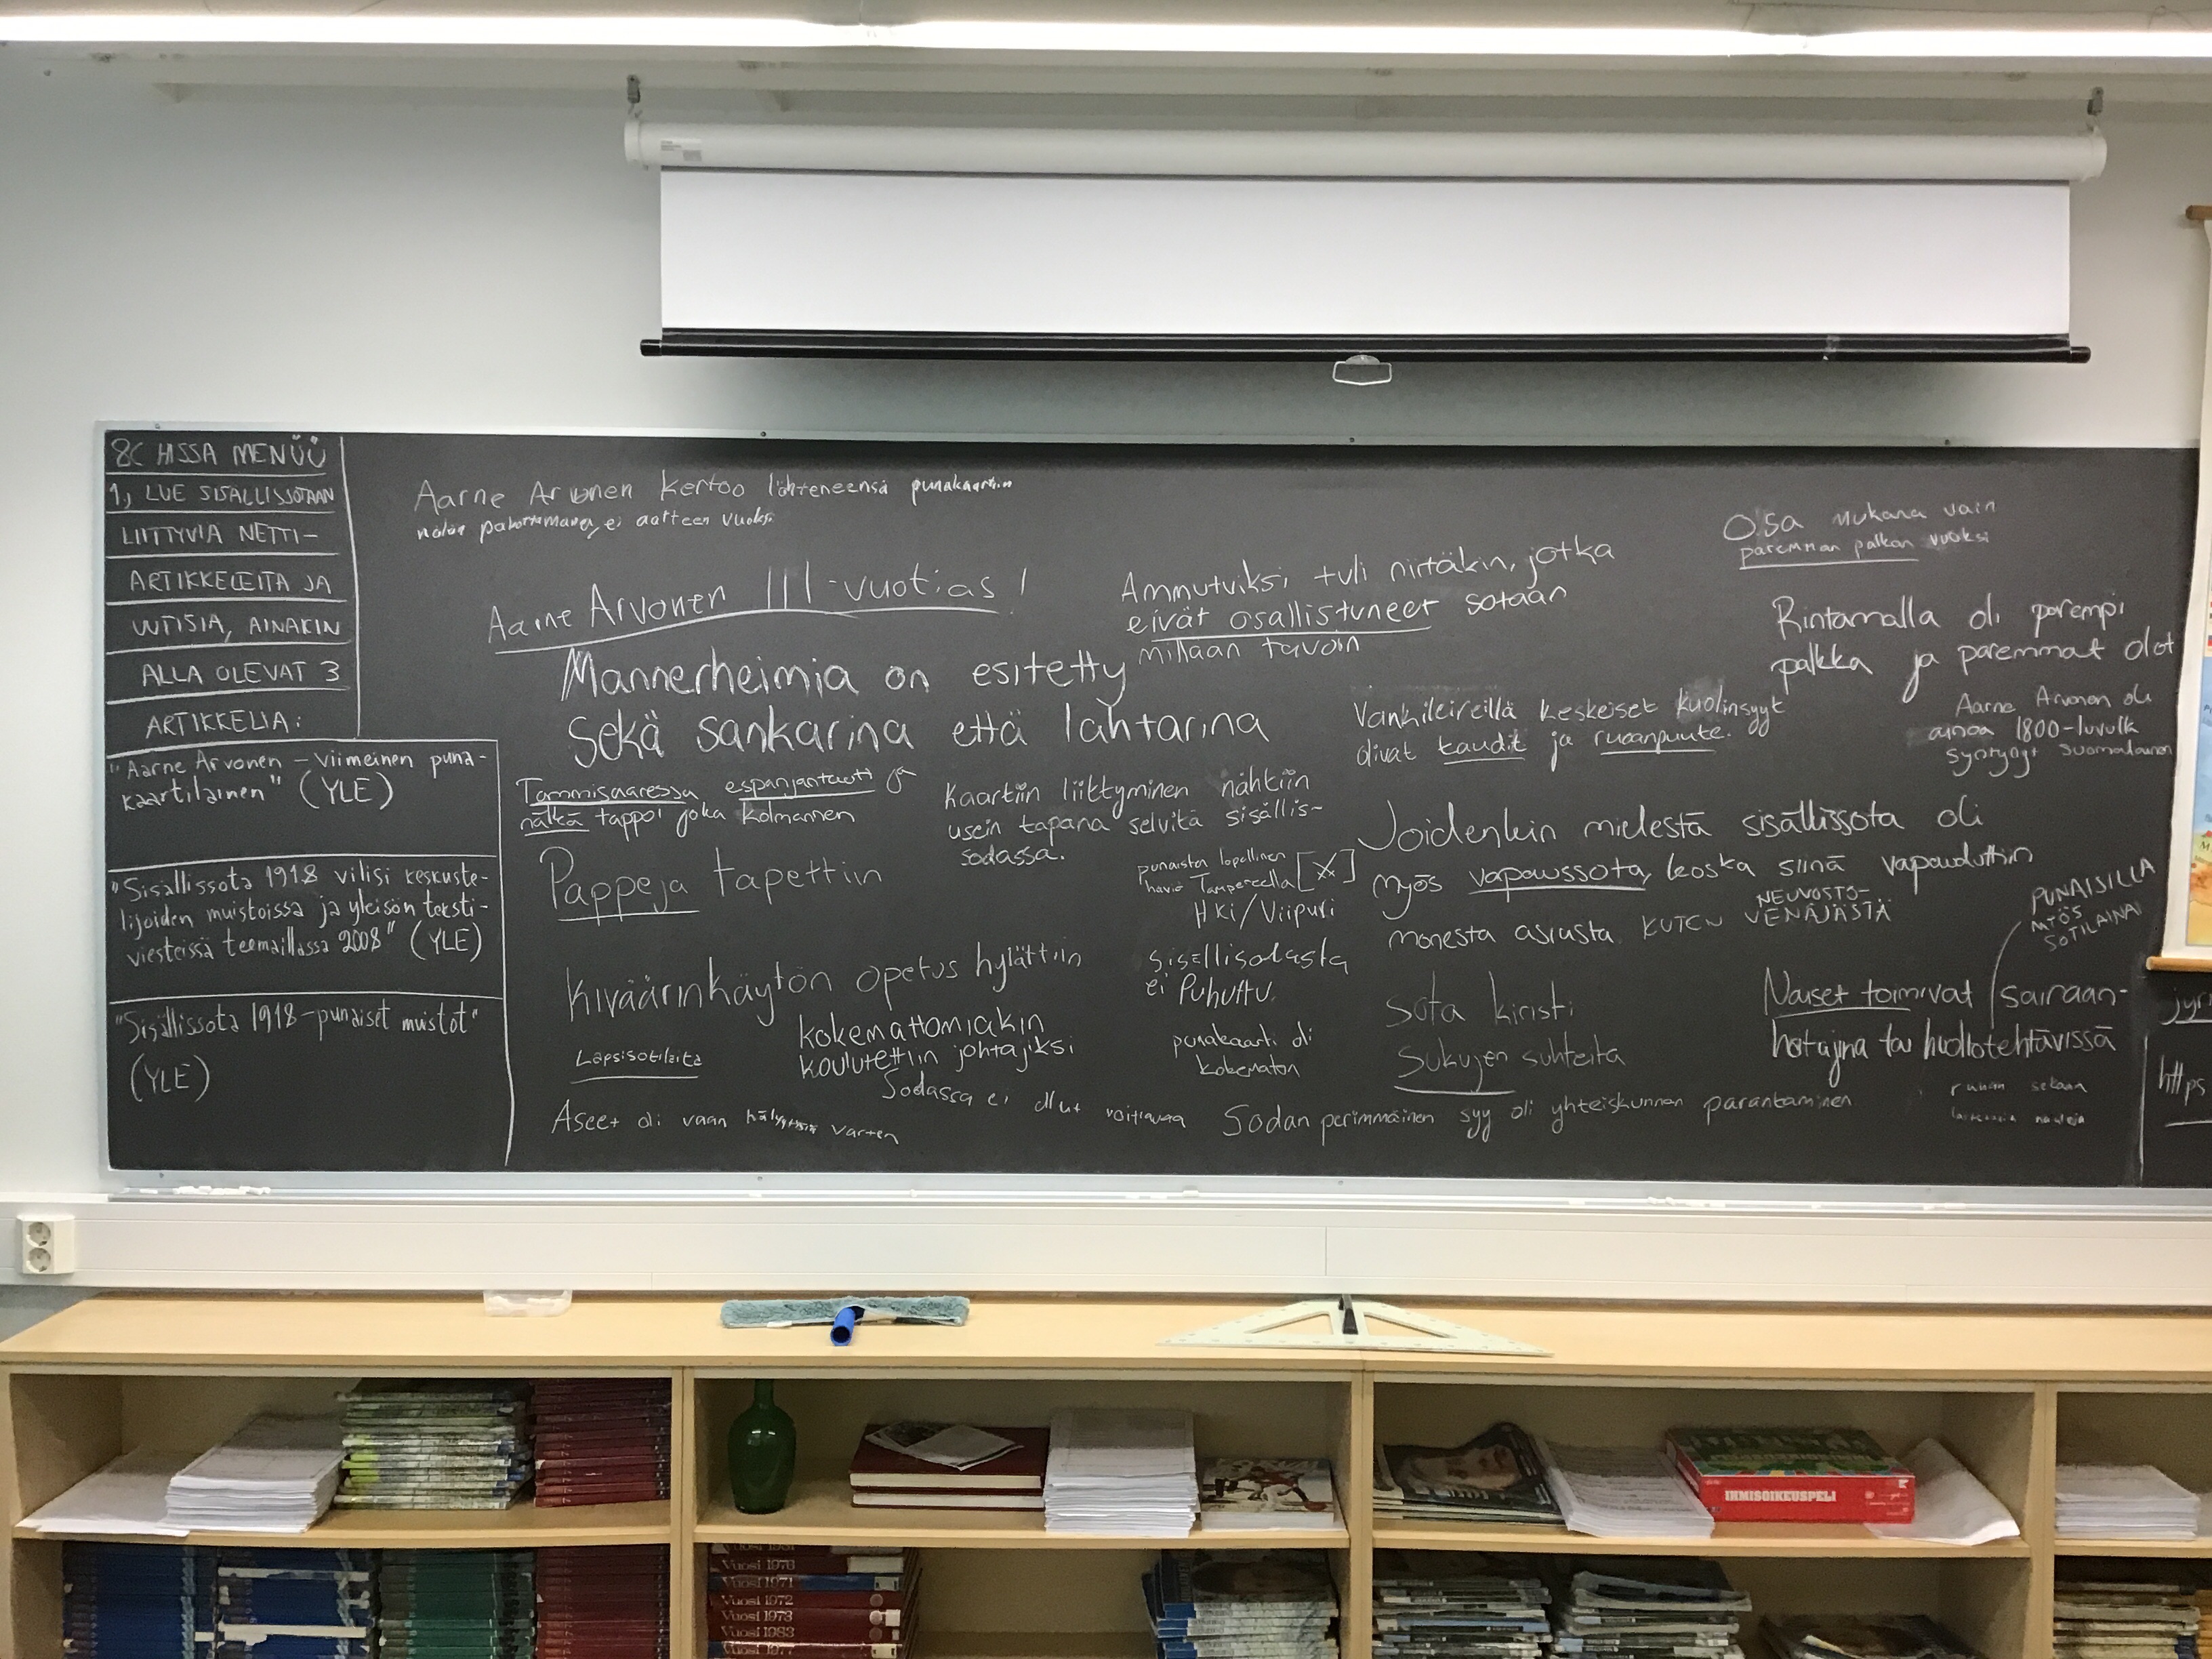 8C HISSA MENÜÜ
1, LUE SISÄLLISSOTAAN
LIITTYVIÄ NETTI-
ARTIKKELEITA JA
UUTISIA, AINAKIN
ALLA OLEVAT 3
ARTIKKELIA:
"Aarne Arvonen – viimeinen puna-
kaartilainen" (YLE)
"Sisällissota 1918 vilisi keskuste-
lijoiden muistoissa ja yleisön teksti-
viesteissä teemaillassa 2008" (YLE)
"Sisällissota 1918-punaiset muistot"
(YLE)
Aarne Arvonen kertoo lähteneensä punakaartiin
nälän pakottamana, ei aatteen vuoksi
Aarne Arvonen 111-vuotias!
Mannerheimia on esitetty
sekä sankarina että lahtarina
Tammisaaressa espanjantauti ja
nälkä tappoi joka kolmannen
Pappeja tapettiin
Kiväärinkäytön opetus hylättiin
kokemattomiakin
koulutettiin johtajiksi
Lapsisotilaita
Sodassa ei ollut voittajaa
Aseet oli vaan varten
Ammutuiksi tuli niitäkin, jotka
eivät osallistuneet sotaan
millään tavoin
Kaartiin liittyminen nähtiin
usein tapana selvitä sisällis-
sodassa.
punaisten lopullinen
häviö Tampereella [X]
Hki/Viipuri
Sisällisodasta
ei Puhuttu.
punakaarti oli
kokematon
Osa mukana vain
paremman palkan vuoksi
Rintamalla oli parempi
palkka ja paremmat olot
Vankileireillä keskeiset kuolinsyyt
olivat taudit ja ruoanpuute.
Aarne Arvonen oli
ainoa 1800-luvulla
syntynyt suomalainen
Joidenkin mielestä sisällissota oli
myös vapaussota, koska siinä vapauduttiin
monesta asiasta KUTEN NEUVOSTO-
VENÄJÄSTÄ
PUNAISILLA
MYÖS
SOTILAINA
Sota kiristi
Sukujen suhteita
Naiset toimivat sairaan-
hoitajina tai huoltotehtävissä
Sodan perimmäinen syy oli yhteiskunnan parantaminen
ruuan sekaan
nauloja
https
IHMISOIKEUSPELI
Vuosi 1976
Vuosi 1971
Vuosi 1972
Vuosi 1973
Vuosi 1983